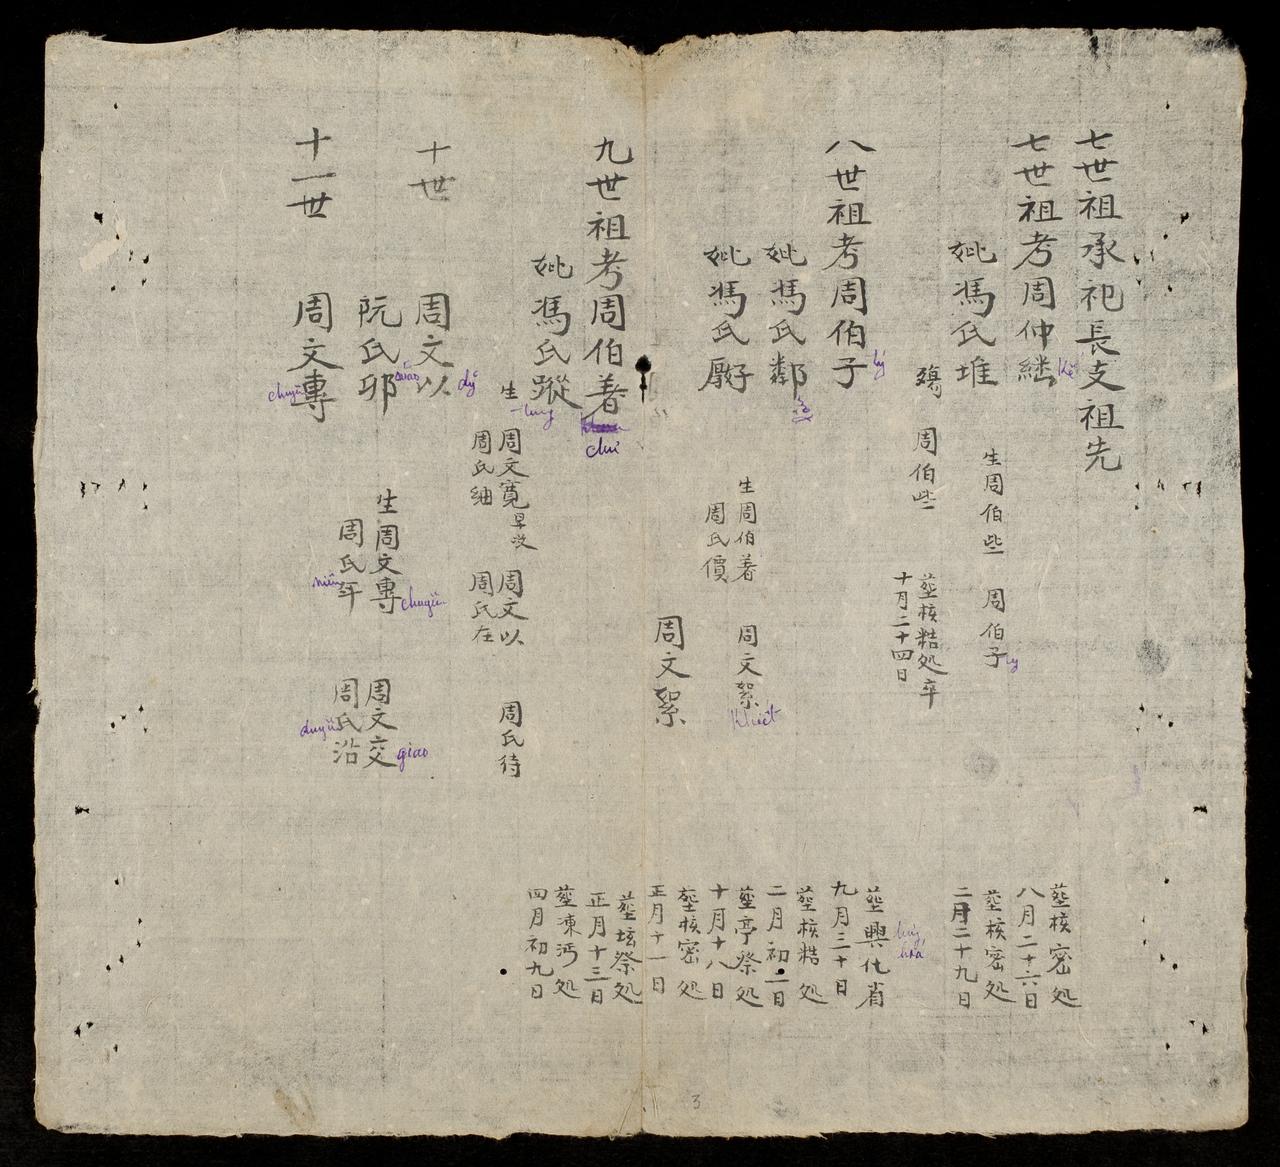 七世祖承祀長支祖先
七世祖考周仲継
Kế
葬核密処
八月二十六日
妣馮氏堆
生周伯些 周伯子
lý
葬核密処
二月二十九日
殤 周伯些
葬核糕処卒
十月二十四日
八世祖考周伯子
lý
葬興化省
九月三十日
hưng hóa
妣馮氏鄰
葬核糕処
二月初二日
妣馮氏
生周伯著 周文絜
khiết
周氏價
葬亭祭処
十月十八日
周文絜
葬核密処
正月十一日
九世祖考周伯著
chứ
葬坛祭処
正月十三日
妣馮氏蹤
tung
葬凍沔処
四月初九日
生周文寬早没 周文以 周氏待
周氏紬 周氏在
十世 周文以
dỹ
阮氏卯
mão
生周文專 周文交
chuyên
giao
周氏年 周氏沿
niên
duyên
十一世 周文專
chuyên
3